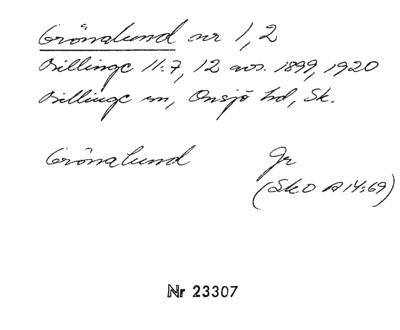 Grönalund nr 1, 2
Billinge 11:7, 12 avs. 1899, 1920
Billinge sn, Onsjö hd, Sk.
Grönalund Gr
(SkO A14:69)
Nr 23307